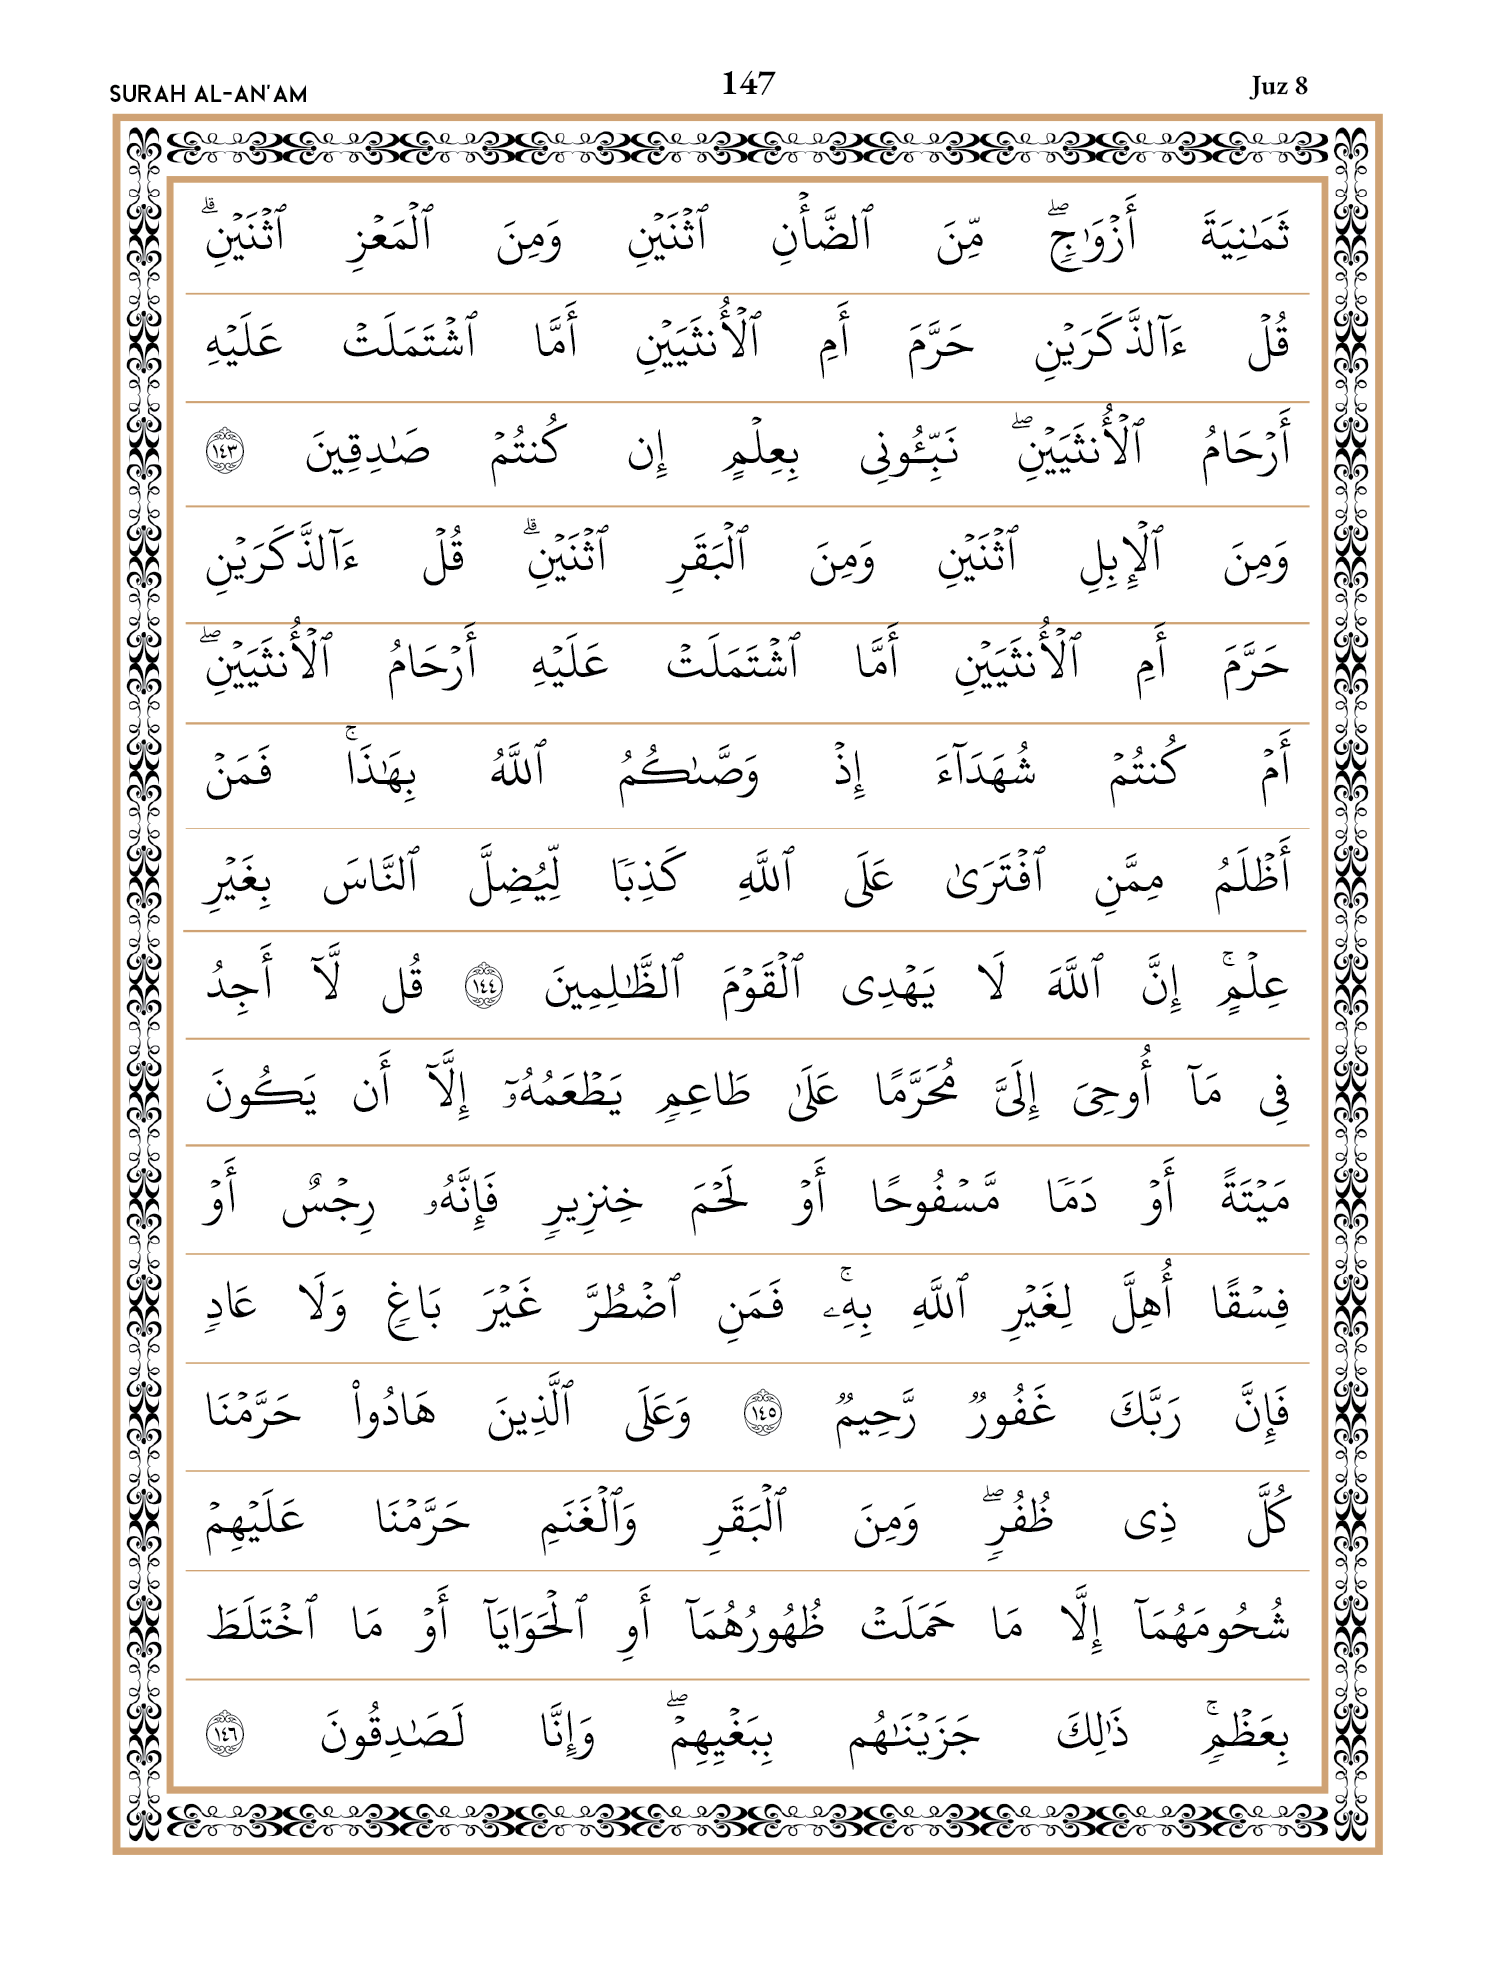 SURAH AL-AN'AM
147
Juz 8
ثَمَٰنِيَةَ أَزۡوَٰجٖۖ مِّنَ ٱلضَّأۡنِ ٱثۡنَيۡنِ وَمِنَ ٱلۡمَعۡزِ ٱثۡنَيۡنِۗ
قُلۡ ءَآلذَّكَرَيۡنِ حَرَّمَ أَمِ ٱلۡأُنثَيَيۡنِ أَمَّا ٱشۡتَمَلَتۡ عَلَيۡهِ
أَرۡحَامُ ٱلۡأُنثَيَيۡنِۖ نَبِّـُٔونِي بِعِلۡمٍ إِن كُنتُمۡ صَٰدِقِينَ ١٤٣
وَمِنَ ٱلۡإِبِلِ ٱثۡنَيۡنِ وَمِنَ ٱلۡبَقَرِ ٱثۡنَيۡنِۗ قُلۡ ءَآلذَّكَرَيۡنِ
حَرَّمَ أَمِ ٱلۡأُنثَيَيۡنِ أَمَّا ٱشۡتَمَلَتۡ عَلَيۡهِ أَرۡحَامُ ٱلۡأُنثَيَيۡنِۖ
أَمۡ كُنتُمۡ شُهَدَآءَ إِذۡ وَصَّىٰكُمُ ٱللَّهُ بِهَٰذَاۚ فَمَنۡ
أَظۡلَمُ مِمَّنِ ٱفۡتَرَىٰ عَلَى ٱللَّهِ كَذِبٗا لِّيُضِلَّ ٱلنَّاسَ بِغَيۡرِ
عِلۡمٍۚ إِنَّ ٱللَّهَ لَا يَهۡدِي ٱلۡقَوۡمَ ٱلظَّٰلِمِينَ ١٤٤ قُل لَّآ أَجِدُ
فِي مَآ أُوحِيَ إِلَيَّ مُحَرَّمًا عَلَىٰ طَاعِمٖ يَطۡعَمُهُۥٓ إِلَّآ أَن يَكُونَ
مَيۡتَةً أَوۡ دَمٗا مَّسۡفُوحًا أَوۡ لَحۡمَ خِنزِيرٖ فَإِنَّهُۥ رِجۡسٌ أَوۡ
فِسۡقًا أُهِلَّ لِغَيۡرِ ٱللَّهِ بِهِۦۚ فَمَنِ ٱضۡطُرَّ غَيۡرَ بَاغٖ وَلَا عَادٖ
فَإِنَّ رَبَّكَ غَفُورٞ رَّحِيمٞ ١٤٥ وَعَلَى ٱلَّذِينَ هَادُواْ حَرَّمۡنَا
كُلَّ ذِي ظُفُرٖۖ وَمِنَ ٱلۡبَقَرِ وَٱلۡغَنَمِ حَرَّمۡنَا عَلَيۡهِمۡ
شُحُومَهُمَآ إِلَّا مَا حَمَلَتۡ ظُهُورُهُمَآ أَوِ ٱلۡحَوَايَآ أَوۡ مَا ٱخۡتَلَطَ
بِعَظۡمٖۚ ذَٰلِكَ جَزَيۡنَٰهُم بِبَغۡيِهِمۡۖ وَإِنَّا لَصَٰدِقُونَ ١٤٦